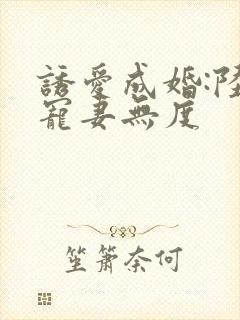 誘愛成婚:陸
寵妻無度
笙簫奈何